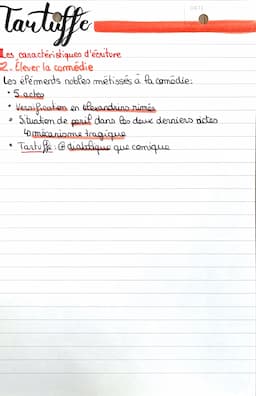 Tartuffe
DATE
Les caractéristiques d'écriture
2. Élever la comédie
Les éléments nobles métissés à la comédie:
• 5 actes
• Versification en alexandrins rimés
• Situation de péril dans les deux derniers actes
↳ mécanisme tragique
• Tartuffe: diabolique que comique